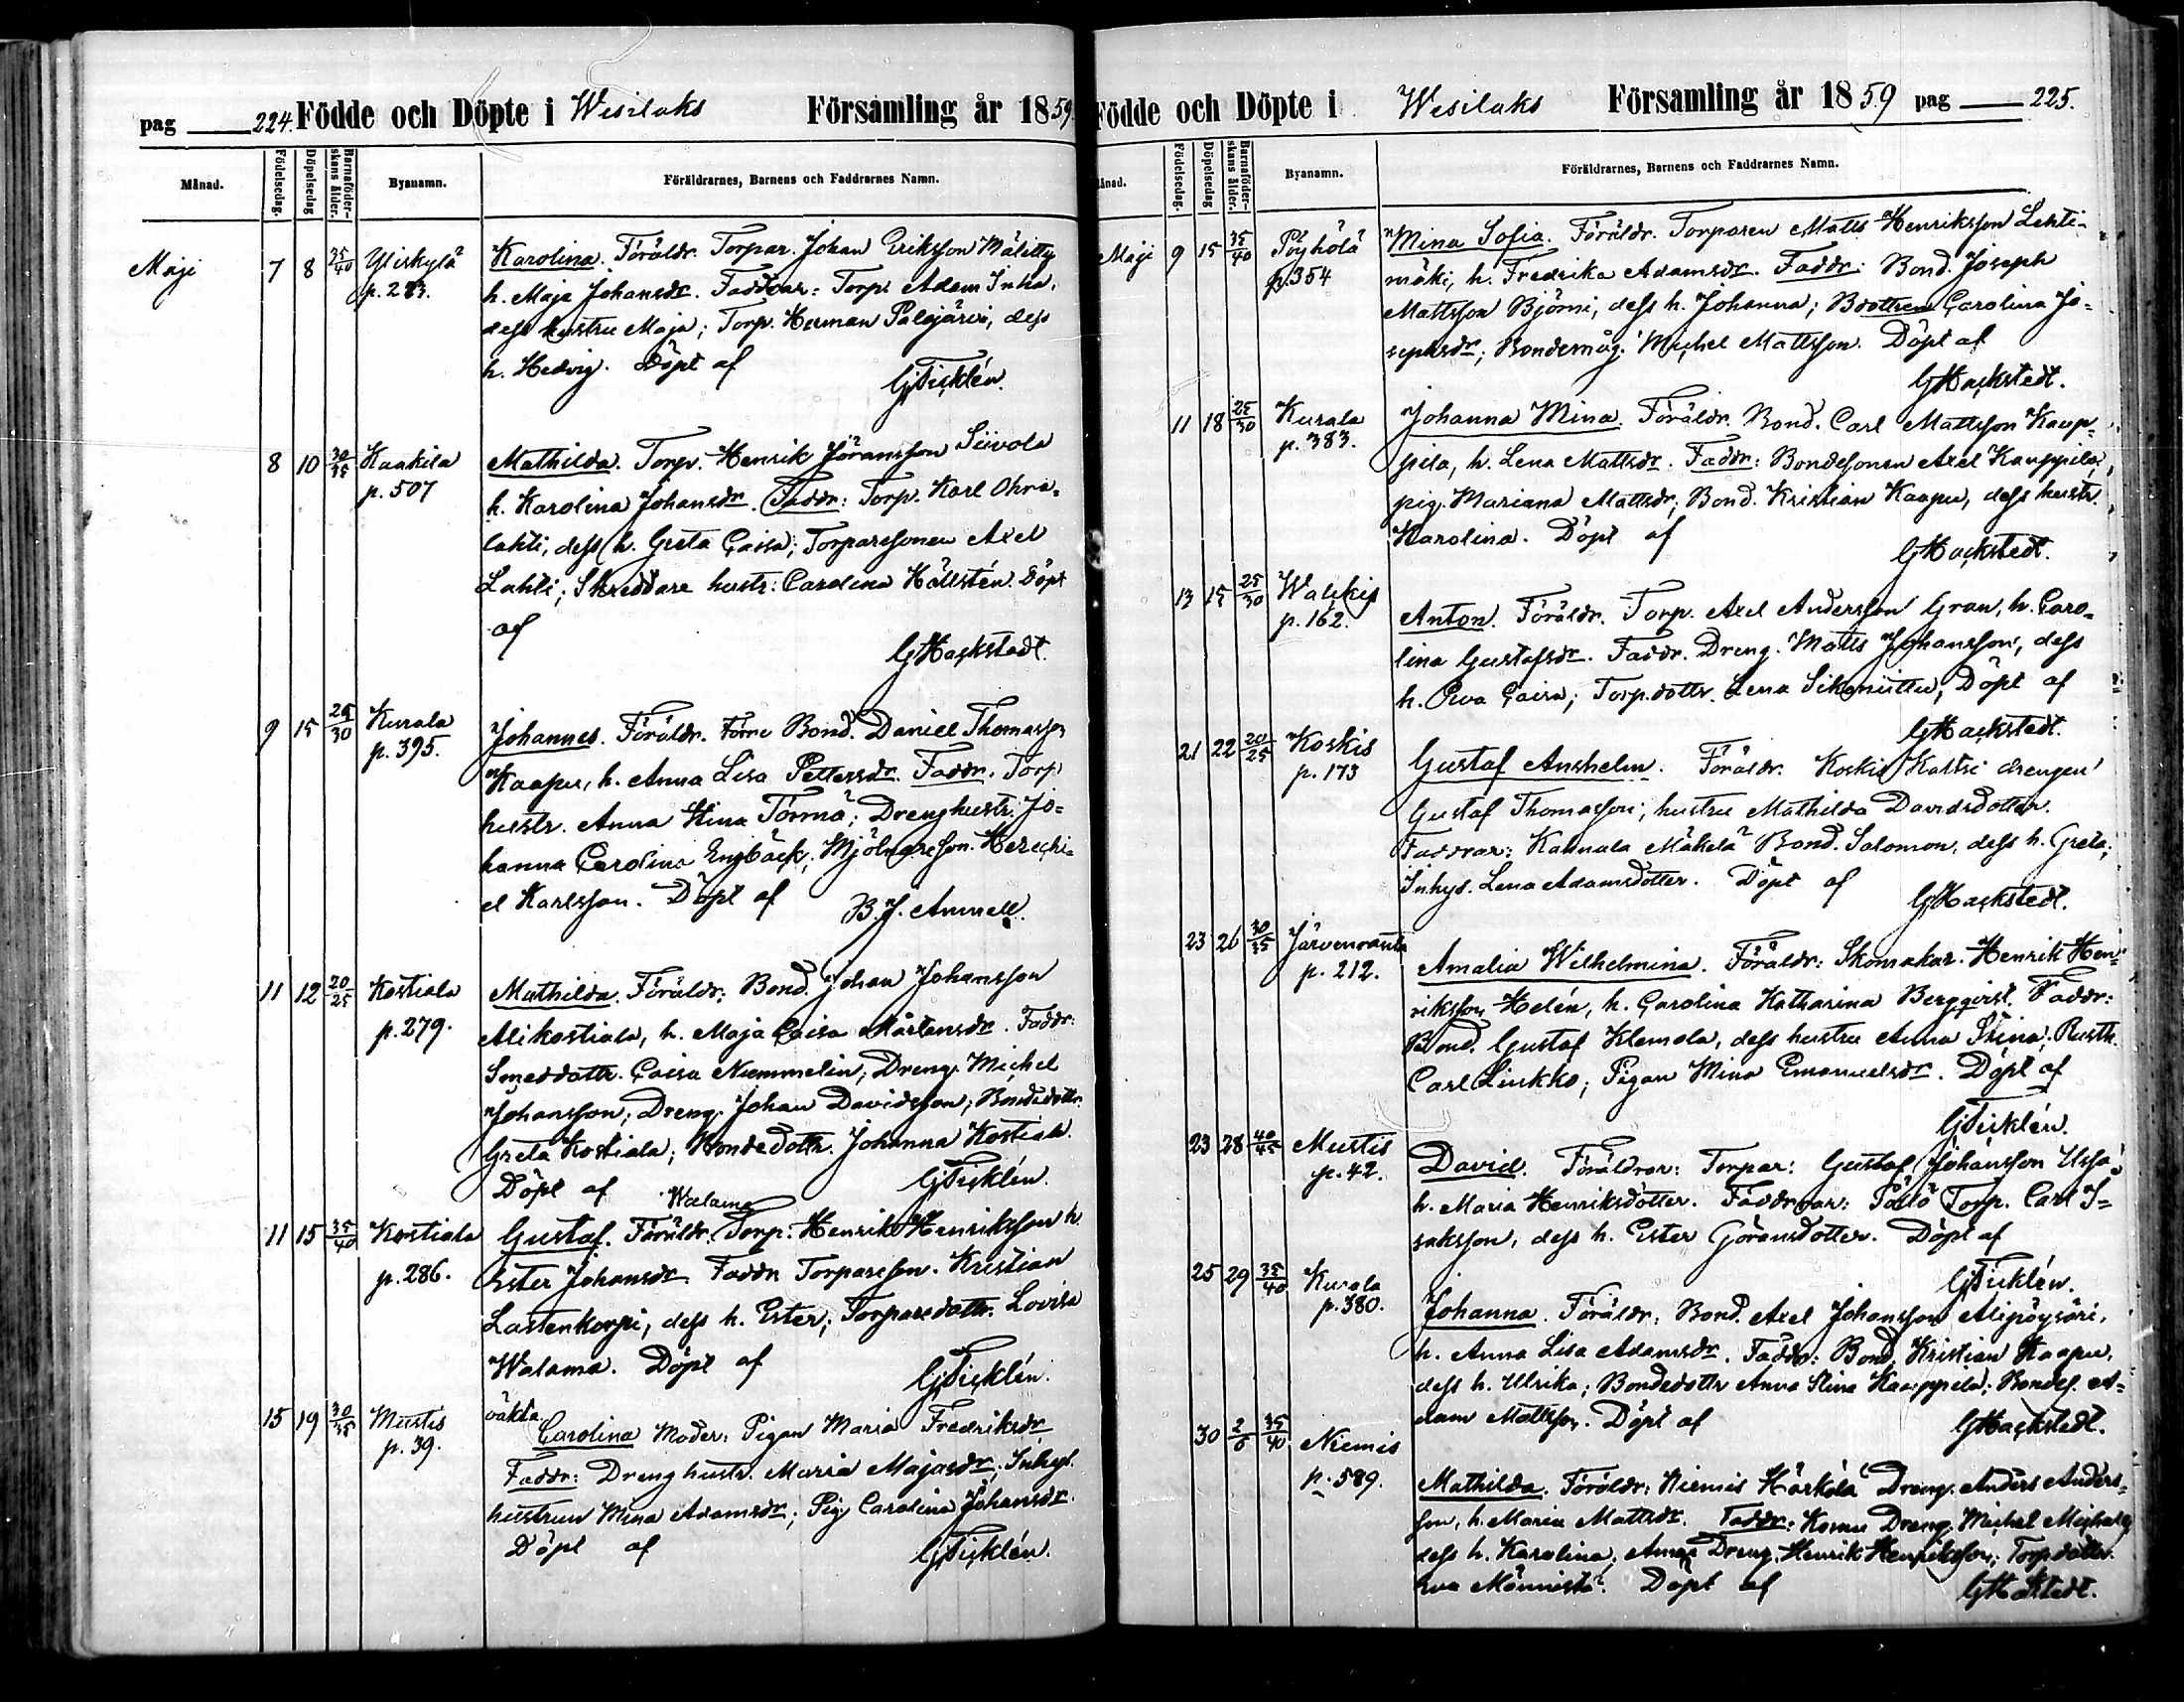 pag 224. Födde och Döpte i Wesilaks Församling år 1859.
Månad. Födelsedag. Döpelsedag Barnaföderskans ålder. Byanamn. Föräldrarnes, Barnens och Faddrarnes Namn.
Maji 7 8 35/40 Yliskylä Karolina. Föräldr. Torpar. Johan Eriksson Mälitty
p. 283. h. Maja Johansdr. Faddrar: Torp. Adam Inha,
dess hustru Maja; Torp. Herman Palojärvi, dess
h. Hedvig. Döpt af
GTicklén.
8 10 30/35 Kaakila Mathilda. Torp. Henrik Jöransson Siivola
p. 507 h. Karolina Johansdr. Faddr: Torp. Karl Ohra-
lahti, dess h. Greta Caisa; Torparesonen Axel
Lahti; Skreddare hustr: Carolina Hällstén. Döpt
af
GHackstedt.
9 15 25/30 Kurala Johannes. Föräldr. Förre Bond. Daniel Thomasson
p. 395. Kaapu, h. Anna Lisa Pettersdr. Faddr. Torp.
hustr. Anna Stina Törmä; Dreng hustr. Jo-
hanna Carolina Engbäck; Mjölnareson. Hezechi-
el Karlsson. Döpt af
B. J. Annell.
11 12 20/25 Kostiala Mathilda. Föräldr: Bond. Johan Johansson
p. 279. Alikostiala, h. Maja Caisa Mårtensdr. Faddr:
Smeddottr. Caisa Nummelin; Dreng. Michel
Johansson; Dreng. Johan Davidsson; Bondedottr.
Greta Kostiala; Bondedottr. Johanna Kostiala.
Döpt af GTicklén.
Walama
11 15 35/40 Kostiala Gustaf. Föräldr. Torp. Henrik Henriksson h.
p. 286. Ester Johansdr. Faddr Torpareson. Kristian
Lastenkorpi, dess h. Ester; Torparedottr. Lovisa
Walama. Döpt af
GTicklén.
oäkta
15 19 30/35 Mustis Carolina Moder: Pigan Maria Fredriksdr
p. 39. Faddr: Dreng hustr. Maria Majasdr; Inhys.
hustrun Mina Adamsdr; Pig. Carolina Johansdr.
Döpt af GTicklén.
Födde och Döpte i Wesilaks Församling år 1859 pag 225.
Månad. Födelsedag. Döpelsedag Barnaföderskans ålder. Byanamn. Föräldrarnes, Barnens och Faddrarnes Namn.
Maji 9 15 35/40 Pöyhölä Mina Sofia. Föräldr. Torparen Matts Henriksson Lehti-
p. 354 mäki, h. Fredrika Adamsdr. Faddr: Bond. Joseph
Mattsson Björni, dess h. Johanna; Bdottren Carolina Jo-
sephsdr; Bondemåg. Michel Mattsson. Döpt af
GHackstedt.
11 18 25/30 Kurala Johanna Mina. Föräldr. Bond. Carl Mattsson Kaup-
p. 383. pila, h. Lena Mattsdr. Faddr: Bondesonen Axel Kauppila,
pig. Mariana Mattsdr; Bond. Kristian Kaapu, dess hustr.
Karolina. Döpt af
GHackstedt.
13 15 25/30 Walkis Anton. Föräldr. Torp. Axel Andersson Gran, h. Caro-
p. 162. lina Gustafsdr. Faddr. Dreng. Matts Johansson, dess
h. Eva Caisa; Torp.dottr. Lena Sikoniittu; Döpt af
GHackstedt.
21 22 20/25 Koskis Gustaf Anshelm. Föräldr. Koskis Kaltsi drengen
p. 173 Gustaf Thomasson; hustru Mathilda Davidsdotter.
Faddrar: Kannala Mäkelä Bond. Salomon, dess h. Greta;
Inhys. Lena Adamsdotter. Döpt af
GHackstedt.
23 26 30/35 Järvenranta Amalia Wilhelmina. Föräldr: Skomakar. Henrik Hen-
p. 212. riksson Helén, h. Carolina Katharina Bergqvist. Faddr:
Bond. Gustaf Klemola, dess hustru Anna Stina; Rusth.
Carl Liukko; Pigan Mina Emanuelsdr. Döpt af
GTicklén.
23 28 40/45 Mustis David. Föräldrar: Torpar: Gustaf Johansson Ussa,
p. 42. h. Maria Henriksdotter. Faddrar: Torp. Carl I-
saksson, dess h. Ester Göransdotter. Döpt af
GTicklén.
25 29 35/40 Kurala Johanna. Föräldr: Bond. Axel Johansson Alipöysäri,
p. 380. h. Anna Lisa Adamsdr. Faddr: Bond. Kristian Kaapu,
dess h. Ulrika; Bondedottr Anna Stina Kauppila; Bondes. A-
dam Mattsson. Döpt af GHackstedt.
30 2/6 35/40 Niemis Mathilda. Föräldr: Niemis Härkälä Dreng. Anders Anders-
p. 589. son, h. Maria Mattsdr. Faddr: Dreng. Michel
dess h. Karolina; Dreng. Henrik Henriksson; Torpdotter.
Eva Männistö. Döpt af GHackstedt.